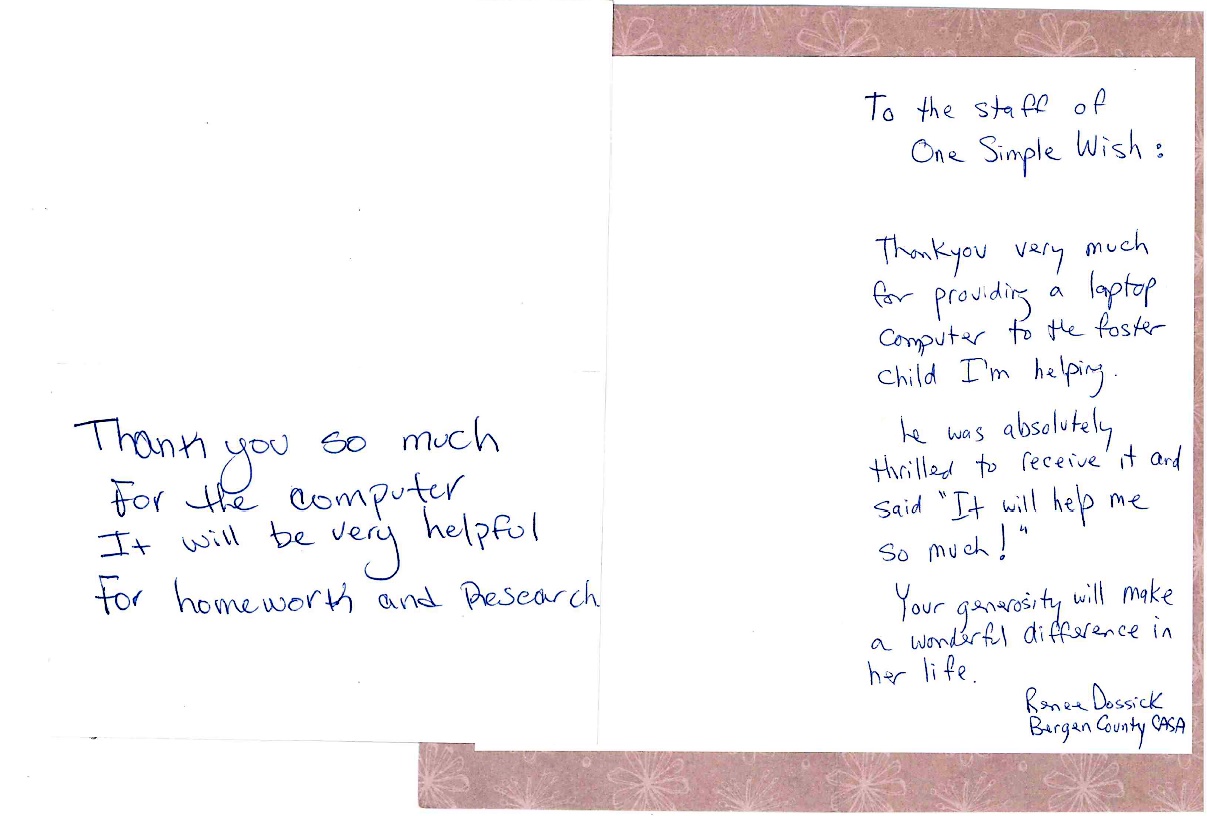 Thank you so much
For the computer
It will be very helpful
For homework and Research
To the staff of
One Simple Wish :
Thankyou very much
for providing a laptop
computer to the foster
child I'm helping.
he was absolutely
thrilled to receive it and
said "It will help me
so much!"
Your generosity will make
a wonderful difference in
her life.
Renee Dossick
Bergen County CASA